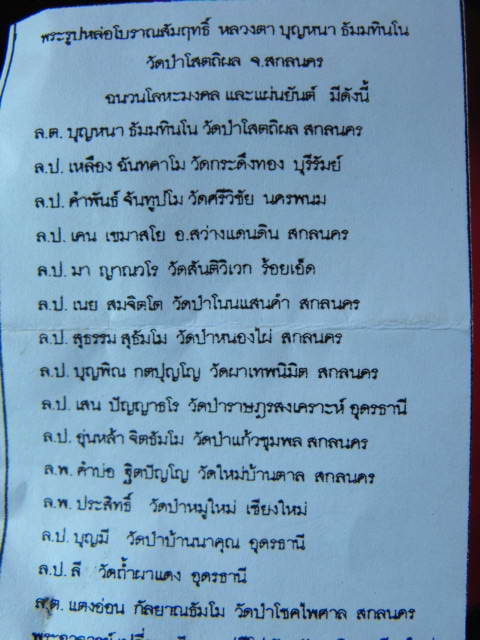 พระรูปหล่อโบราณสัมฤทธิ์ หลวงตา บุญหนา ธัมมทินโน
วัดป่าโสตถิผล จ.สกลนคร
ฉนวนโลหะมงคล และแผ่นยันต์ มีดังนี้
ล.ต. บุญหนา ธัมมทินโน วัดป่าโสตถิผล สกลนคร
ล.ป. เหลือง ฉันทคาโม วัดกระดึงทอง บุรีรัมย์
ล.ป. คำพันธ์ จันทูปโม วัดศรีวิชัย นครพนม
ล.ป. เคน เขมาสโย อ.สว่างแดนดิน สกลนคร
ล.ป. มา ญาณวโร วัดสันติวิเวก ร้อยเอ็ด
ล.ป. เนย สมจิตโต วัดป่าโนนแสนคำ สกลนคร
ล.ป. สุธรรม สุธัมโม วัดป่าหนองไผ่ สกลนคร
ล.ป. บุญพิณ กตปุญโญ วัดผาเทพนิมิต สกลนคร
ล.ป. เสน ปัญญาธโร วัดป่าราษฎรสงเคราะห์ อุดรธานี
ล.ป. อุ่นหล้า จิตธัมโม วัดป่าแก้วชุมพล สกลนคร
ล.พ. คำบ่อ ฐิตปัญโญ วัดใหม่บ้านตาล สกลนคร
ล.พ. ประสิทธิ์ วัดป่าหมู่ใหม่ เชียงใหม่
ล.ป. บุญมี วัดป่าบ้านนาคุณ อุดรธานี
ล.ป. ลี วัดถ้ำผาแดง อุดรธานี
ล.ต. แตงอ่อน กัลยาณธัมโม วัดป่าโชคไพศาล สกลนคร